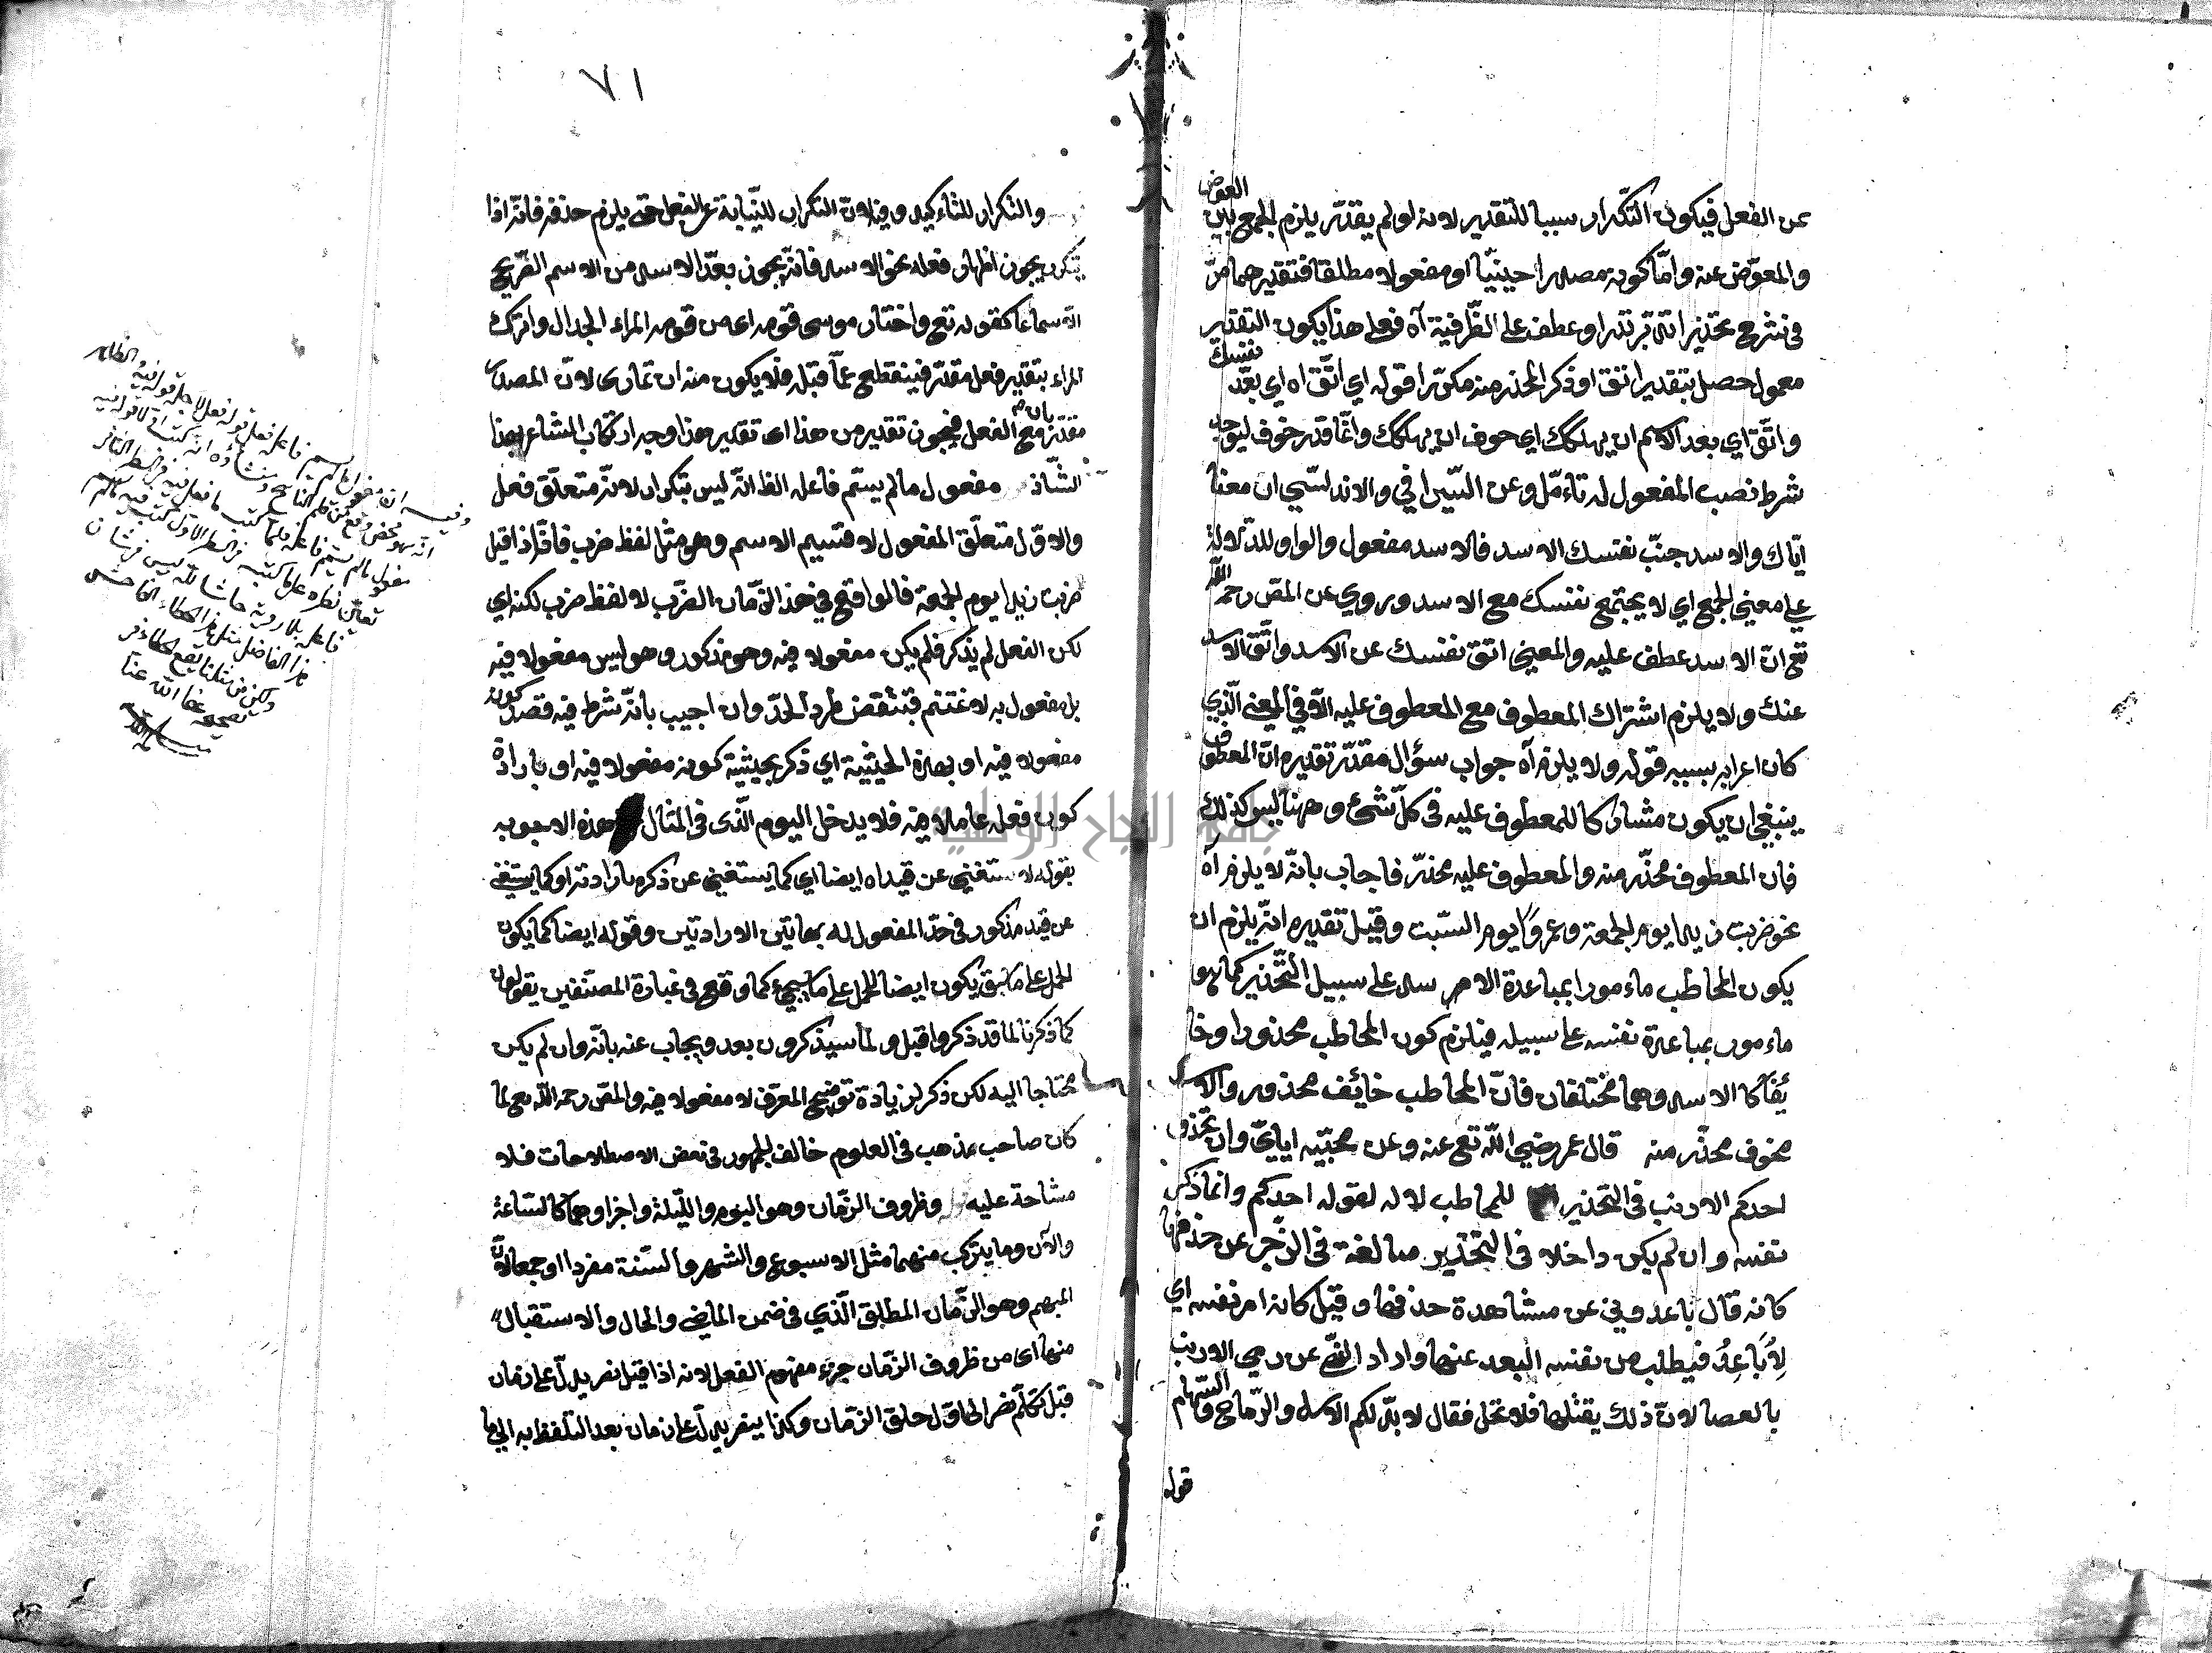 عن الفعل فيكون التكرار سببا للتقدير لانه لو لم يقدّر يلزم الجمع بين العوض
والمعوّض عنه وامّا كونه مصدرا حينيّا او مفعولا مطلقا فتقديرهما مرّ
في شرح تحذيرا او عطف على الظّرفية آه فعلى هذا يكون التقدير
معمول حصل بتقدير اتق او ذكر المحذر منه مكرّرا قوله اي اتّق اه اي بعّد نفسك
واتّق اي بعد الاسم ان يهلكك اي خوف ان يهلكك وانّما قدر خوف ليوجد
شرط نصب المفعول له تاءمّل وعن السّيرافي والاندلسّي ان معنا
ايّاك والاسد جنّب نفسك الاسد فالاسد مفعول والواو للدّلالة
على معنى الجمع اي لا يجتمع نفسك مع الاسد وروي عن المص رحمه الله
تع انّ الاسد عطف عليه والمعنى اتق نفسك عن الاسد واتّق الاسد
عنك ولا يلزم اشتراك المعطوف مع المعطوف عليه الّا في المعنى الّذي
كان اعرابه بسببه قوله ولا يلزم آه جواب سؤال مقدّر تقديره انّ المعطوف
ينبغي ان يكون مشاركا للمعطوف عليه في كلّ شئ وههنا ليس كذلك
فان المعطوف محذّر منه والمعطوف عليه محذّر فاجاب بانّه لا يلزم آه
نحو ضربت زيدا يوم الجمعة وعمروًا يوم السّبت وقيل تقديره انّه يلزم ان
يكون المخاطب ماءمورا بمباعدة الاسد على سبيل التّحذير كما هو
ماءمور بمباعدة نفسه على سبيله فيلزم كون المخاطب محذورا وخا
ئفا كالاسد وهما مختلفان فانّ المخاطب خائف محذور والاسد
مخوف محذّر منه قال عمر رضي اللّه تع عنه وعن محبّيه ايايّ وان يحذف
احدكم الارنب في التحذير للمخاطب لا له لقوله احدكم وانما ذكر
نفسه وان لم يكن داخلا في التحذير مبالغة في الزّجر عن حذفها
كانه قال باعدوني عن مشاهدة حذفها وقيل كانه امر نفسه اي
لِاُبَاعِدُ فيطلب من نفسه البعد عنها واراد النّهي عن رمي الارنب
بالعصا لانّ ذلك يقتلها فلا تحل فقال لا بدّ لكم الاسل والرّماح والسّهام
قوله
٧١
والتكرار للتاءكيد وفيه لانّ التكرار للنّيابة عن الفعل حتى يلزم حذفه فانّه اذا
يتكرر يجوز اظهار فعله نحو الاسد فانّه يجوز بعّد الاسد من الاسم الصّريح
الّا سماعا كقوله تع واختار موسى قومه اى من قومه المراء الجدال واترك
المراء بتقدير فعل مقدّر فينقطع عمّا قبله فلا يكون منه ان تمارى لانّ المصدر
مقدّر بان مع الفعل فيجوز تقدير من هذا اى تقدير من اوجه ارتكاب الشاعر بهذا
الشّاذ مفعول ما لم يسّم فاعله الظ انّه ليس بتكرار لانّه متعلّق فعل
والاوّل متعلّق المفعول لا قسيم الاسم وهو مثل لفظ ضرب فانّه اذا قيل
ضربت زيدا يوم الجمعة فالواقع في هذ الزّمان الضّرب لا لفظ ضرب لكنه اي
لكن الفعل لم يذكر فلم يكن مفعولا فيه وهو مذكور وهو ليس مفعولا فيه
بل مفعول به لاغتنم فينتقض طرد الحدّ وان اجيب بانّه شرط فيه قصد كونه
مفعولا فيه او بهذه الحيثية اي ذكر بحيثية كونه مفعولا فيه او بارادة
كون فعله عاملا فيه فلا يدخل اليوم الّذى في المثال هذه الاجوبه
بقوله لاستغنى عن قيد اه ايضا اي كما يستغنى عن ذكره بارادته او كما يستغنى
عن قيد مذكور في حدّ المفعول له بهاتين الارادتين وقوله ايضا كما يكون
للحمل على ما سبق يكون ايضا للحمل على ما سيجيء كما وقع في عبارة المصنّفين يقولون
كما ذكرنا لما قد ذكروا قبل ولما سيذكرون بعد ويجاب عنه بانّه وان لم يكن
محتاجا اليه لكن ذكر لزيادة توضيح المعرّف لا مفعولا فيه والمص رحمه اللّه تع لما
كان صاحب مذهب في العلوم خالف الجمهور في بعض الاصطلاحات فلا
مشاحة عليه وظروف الزّمان وهو اليوم واللّيلة واجزاوهما كالسّاعة
والآن وما يتركّب منهما مثل الاسبوع والشهر والسّنة مفردا او جمعا لانّ
المبهم وهو الزّمان المطلق الّذي في ضمن الماضي والحال والاستقبال
منها اى من ظروف الزّمان جزء مفهوم الفعل لانه اذا قيل نصر يدلّ على زمان
قبل تكلّم نصر الى اوّل خلق الزّمان وكذا ينصر يدلّ على زمان بعد التلفّظ به الى ما
جامعة النجاح الوطنية